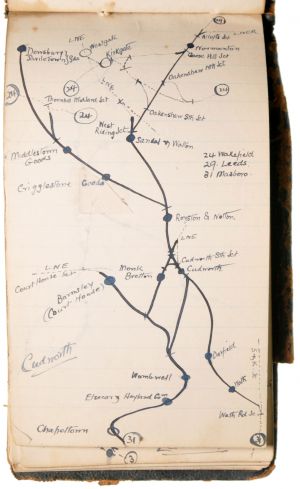 24
LNER
Altofts Jct
Normanton
Goose Hill Jct
LNE
Westgate
Kirkgate
Dewsbury
Oakenshaw Nth Jct
LNE
24
Thornhill Midland Jct
24
Oakenshaw Sth Jct
West
Riding Jct
Sandal & Walton
Middlestown
Goods
24 Wakefield
29 Leeds
31 Masboro
Crigglestone Goods
Royston & Notton
LNE
Cudworth Sth Jct
Cudworth
LNE
Court House Jct
Monk
Bretton
Barnsley
(Court House)
Cudworth
Darfield
Wombwell
Wath
Elsecar & Hoyland Com
Wath Rd Jc
Chapeltown
31